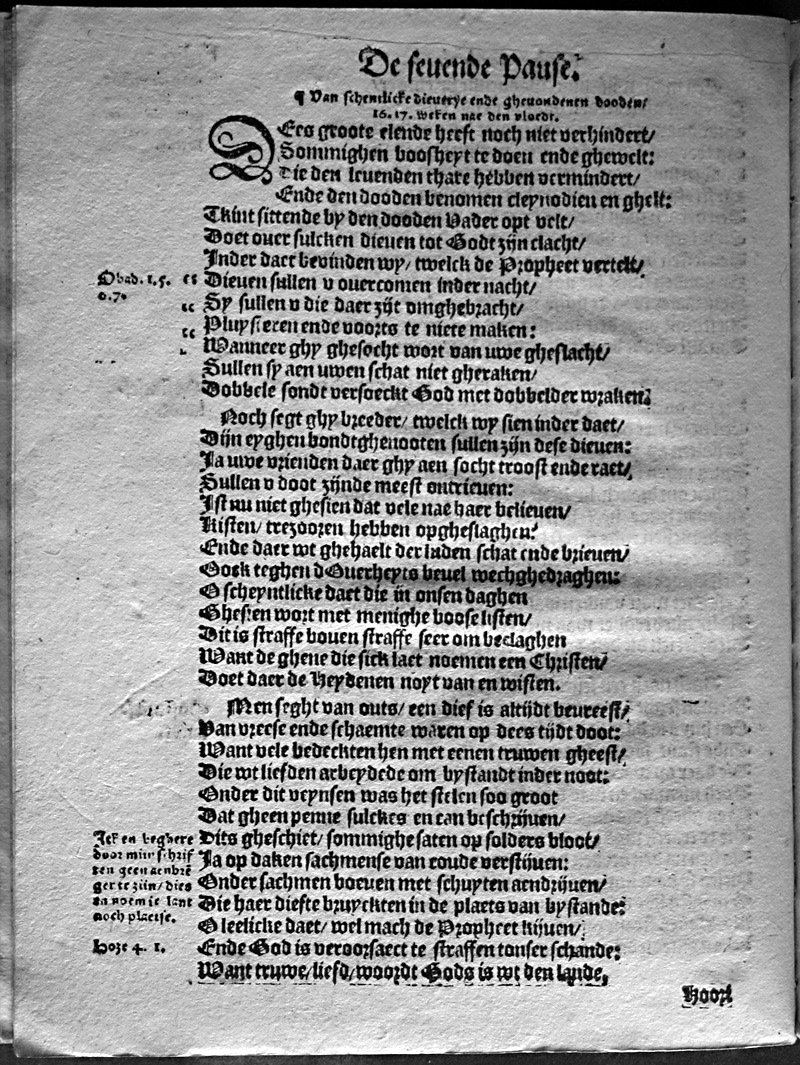 De seuende Pause.
¶ Van schentlicke dieuerye ende gheuondenen dooden/
16. 17. weken nae den vloedt.
DEes groote elende heeft noch niet verhindert/
Sommighen boosheyt te doen ende ghewelt:
Die den leuenden thare hebben vermindert/
Ende den dooden benomen cleynodien en ghelt:
Tkint sittende by den dooden Vader opt velt/
Doet ouer sulcken dieuen tot Godt zijn clacht/
Inder daet bevinden wy/ twelck de Propheet vertelt/
Obad. 1. 5.
6. 7.
“ Dieuen sullen v overcomen inder nacht/
“ Sy sullen v die daer zijt omghebracht/
“ Pluysteren ende voorts te niete maken:
Wanneer ghy ghesocht wort van uwe gheslacht/
Sullen sy aen uwen schat niet gheraken/
Dobbele sondt versoeckt God met dobbelder wraken.
Noch segt ghy breeder/ twelck wy sien inder daet/
Dijn eyghen bondtghenooten sullen zijn dese dieuen:
Ja uwe vrienden daer ghy aen socht troost ende raet/
Sullen v doot zijnde meest ontrieuen:
Ist nu niet ghesien dat vele nae haer belieuen/
Kisten/ trezooren hebben opgheslaghen:
Ende daer wt ghehaelt der luden schat ende brieuen/
Oock teghen dOuerheyts beuel wechghedraghen:
O scheyntlicke daet die in onsen daghen
Ghesien wort met menighe boose listen/
Dit is straffe bouen straffe seer om beclaghen
Want de ghene die sick laet noemen een Christen/
Doet daer de Heydenen noyt van en wisten.
Men seght van outs/ een dief is altijdt beureest/
Van vreese ende schaemte waren op dees tijdt doot:
Want vele bedeckten hen met eenen truwen gheest/
Die wt liefden arbeydede om bystandt inder noot:
Onder dit veynsen was het stelen soo groot
Dat gheen penne sulckes en can beschrijuen/
Ick en beghere
door mijn schrif
ten geen aenbrē
ger te zijn/ dies
ta noem ic lant
noch plaetse.
Dits gheschiet/ sommighe saten op solders bloot/
Ja op daken sachmense van coude verstijuen:
Onder sachmen boeuen met schuyten aendrijuen/
Die haer diefte bruyckten in de plaets van bystande:
O leelicke daet/ wel mach de Propheet kijuen/
Hoze 4. 1.
Ende God is veroorsaect te straffen tonser schande:
Want truwe/ liefd/ woordt Gods is wt den lande,
Hoort